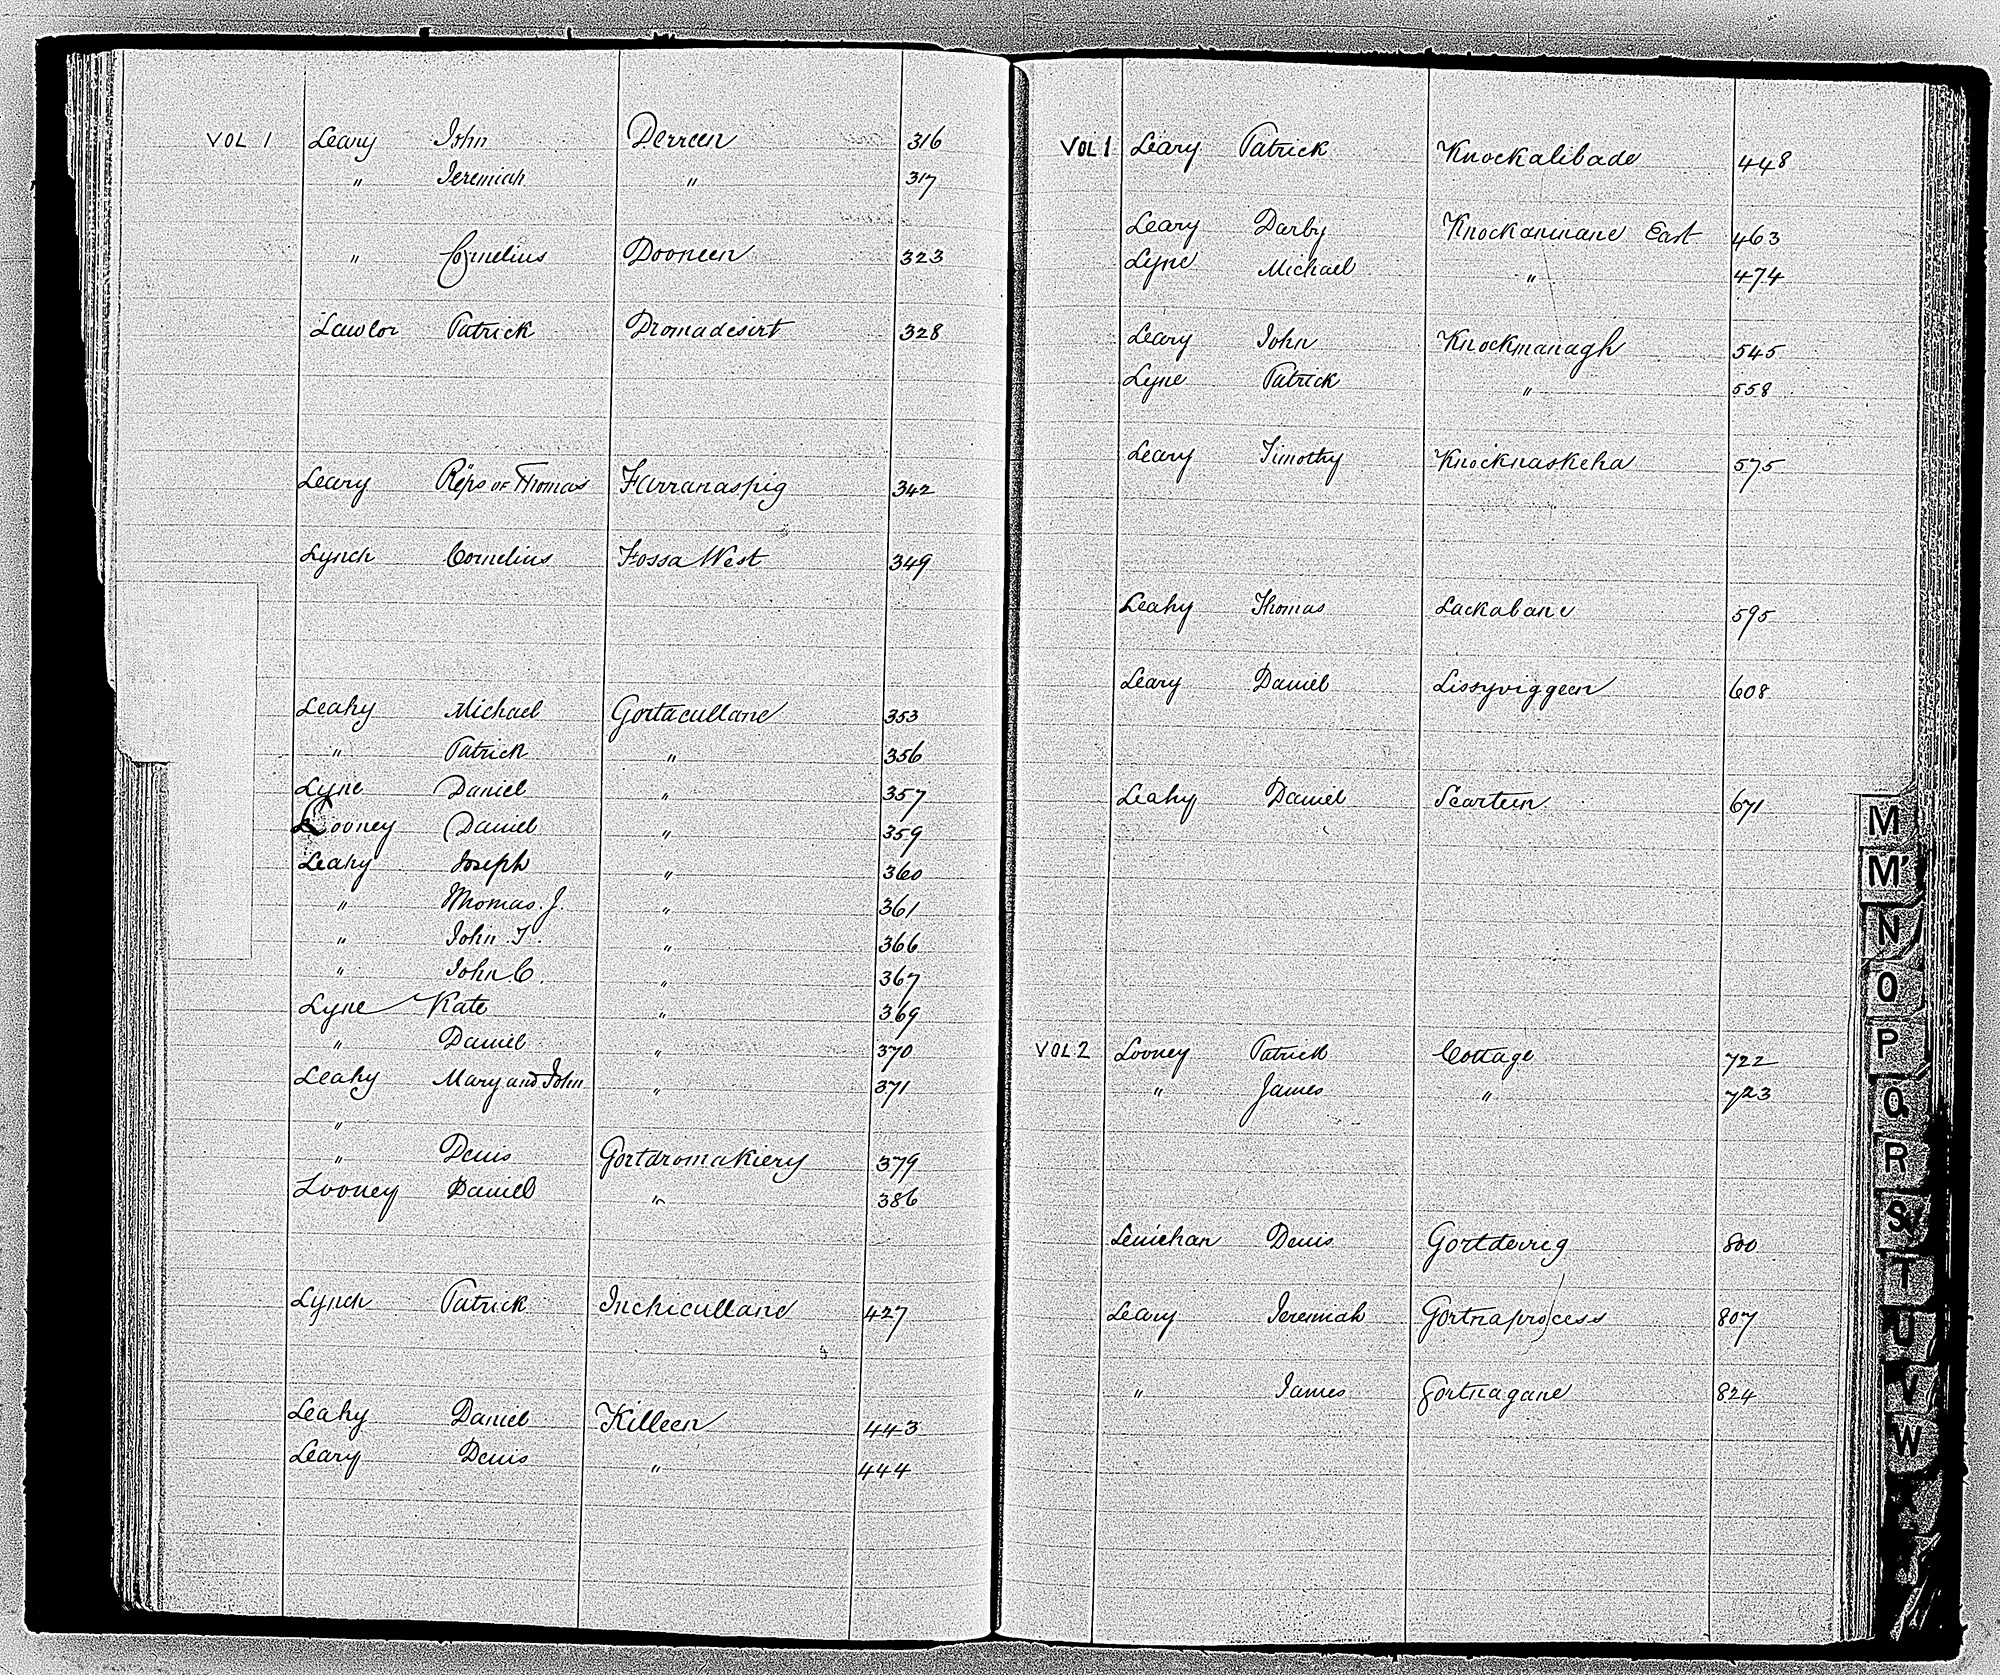 VOL 1 Leary John Derreen 316
" Jeremiah " 317
" Cornelius Dooneen 323
Lawlor Patrick Dromadesirt 328
Leary Reps of Thomas Farranaspig 342
Lynch Cornelius Fossa West 349
Leahy Michael Gortacullane 353
" Patrick " 356
Lyne Daniel " 357
Looney Daniel " 359
Leahy Joseph " 360
" Thomas. J. " 361
" John T. " 366
" John C. " 367
Lyne Kate " 369
" Daniel " 370
Leahy Mary and John " 371
"
" Denis Gortdromakiery 379
Looney Daniel " 386
Lynch Patrick Inchicullane 427
Leahy Daniel Killeen 443
Leary Denis " 444
VOL 1 Leary Patrick Knockalibade 448
Leary Darby Knockaninane East 463
Lyne Michael " 474
Leary John Knockmanagh 545
Lyne Patrick " 558
Leary Timothy Knocknaskeha 575
Leahy Thomas Lackabane 595
Leary Daniel Lissyviggeen 608
Leahy Daniel Scarteen 671
VOL 2 Looney Patrick Cottage 722
" James " 723
Lenichan Denis Gortdevrig 800
Leary Jeremiah Gortnaprocess 807
" James Gortnagane 824
M
M'
N
O
P
Q
R
S
T
U
V
W